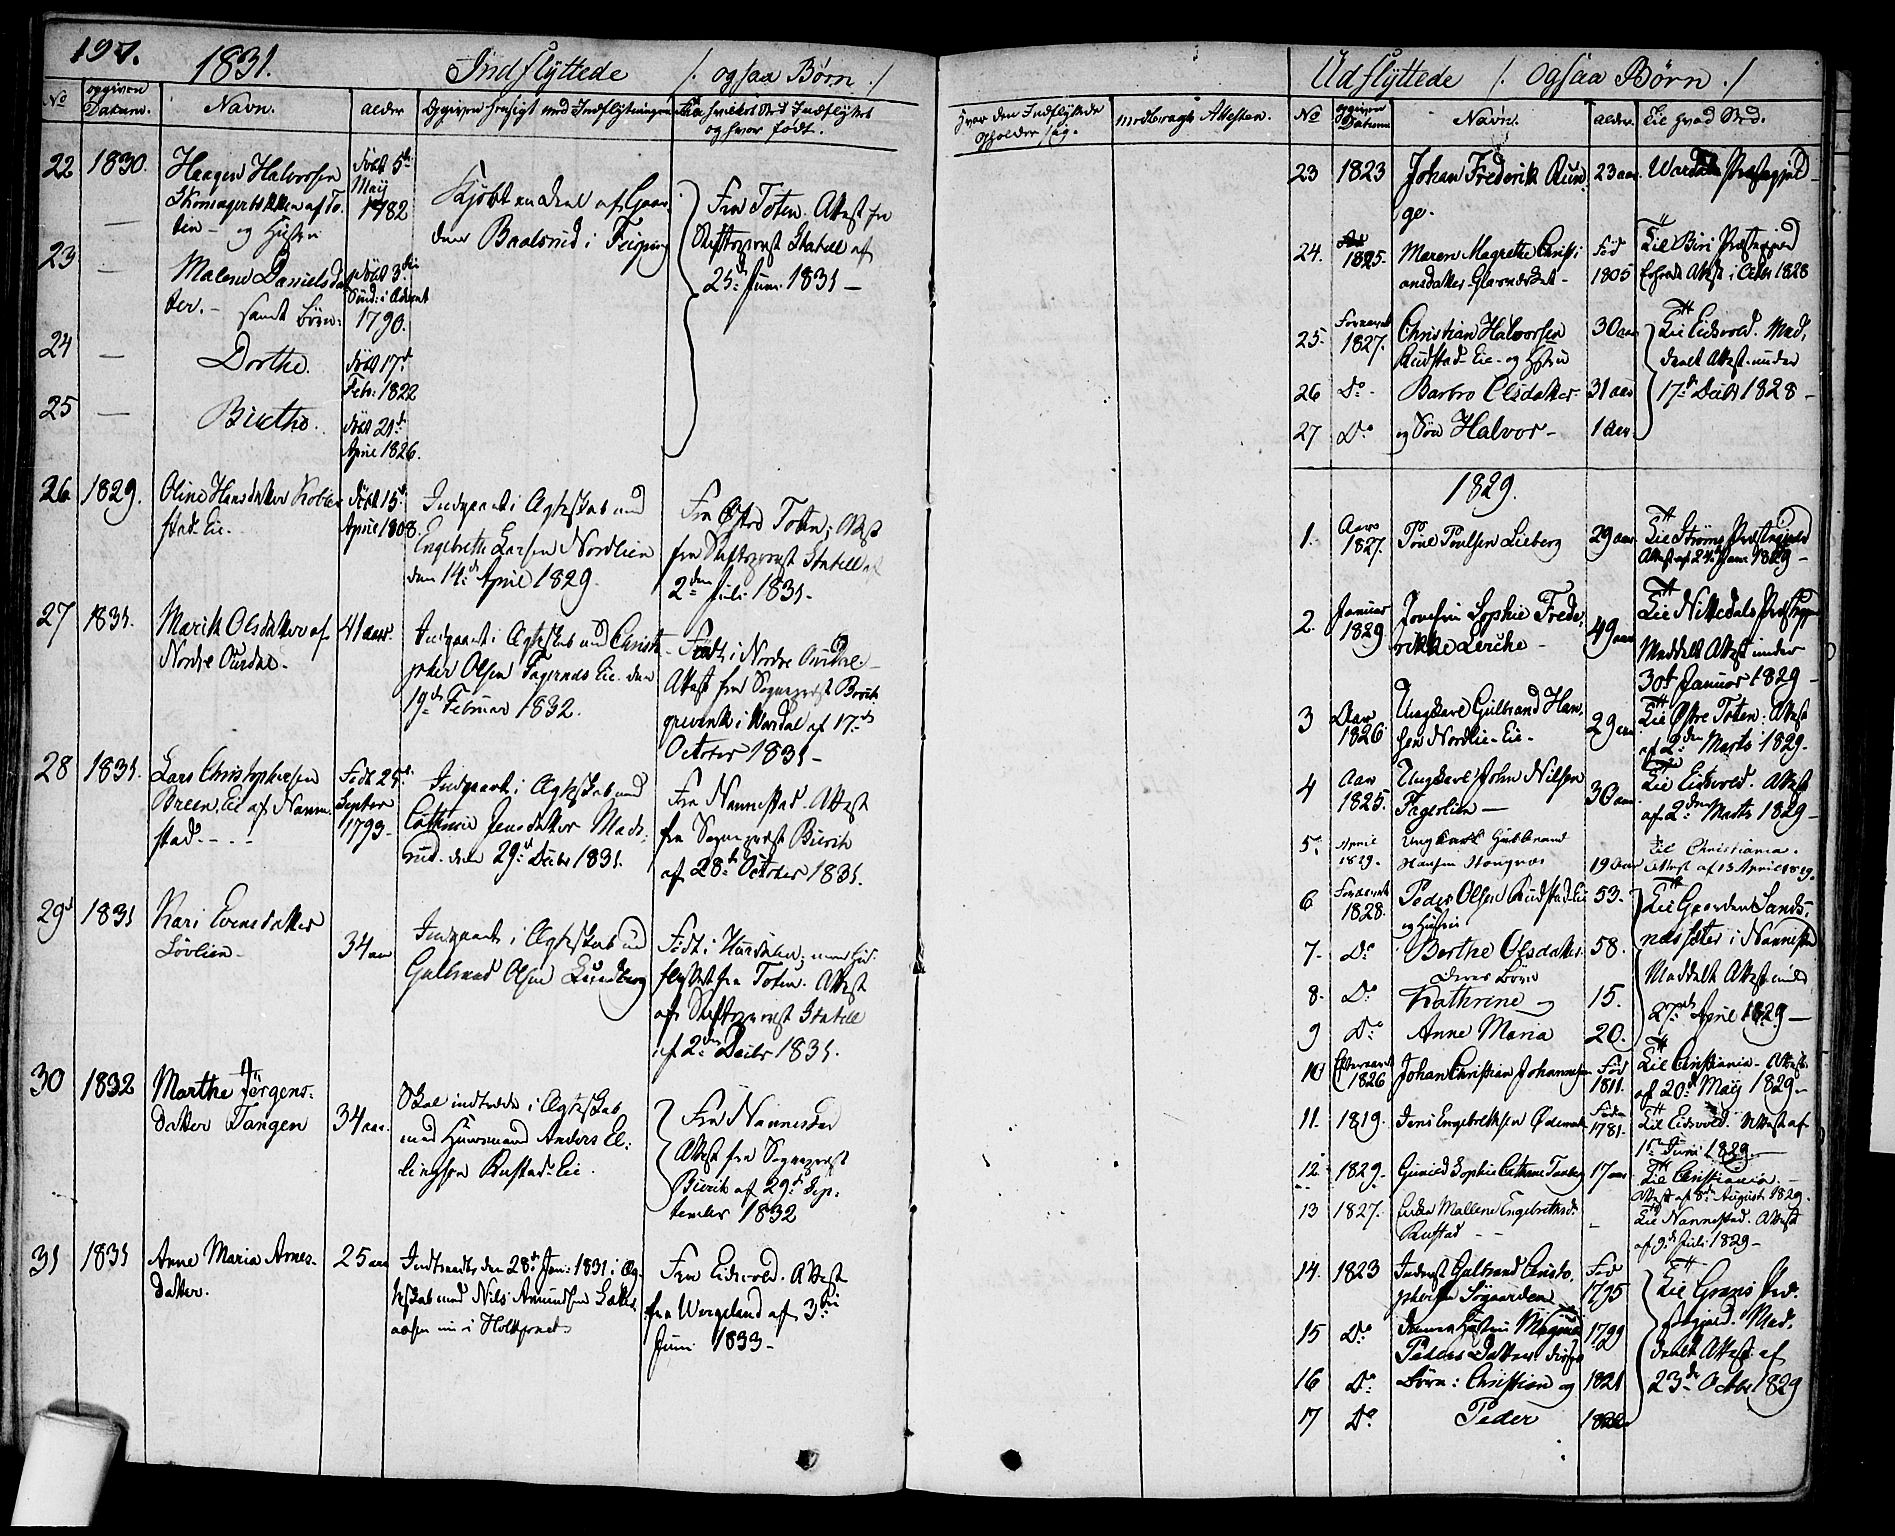 197.
1831.
Indflyttede /: ogsaa Børn :/
No
opgiven Datum.
Navn.
alder
Opgiven hensigt med Indflytningen
Fra hvilket Sted Indflyttet
og hvor født.
22 1830.
Haagen Halvorsen
af To-
ten — og Hustru
Født 5te
Maij
1782
Kjøbt en Deel af Gaar-
den Baalsrud i Feiring
Fra Toten. Attest fra
Stiftsprovst Stabell af
25de Juni 1831 —
23 —
Malene Danielsdat-
ter. — samt Børn:
Født 3die
Sønd: i Advent
1790.
24 —
Dorthe.
Født 17de
Febr: 1822
25 —
Birthe.
Født 21de
April 1826.
26 1829.
Oline Hansdatter Kobber-
stad Eie.
Født 15de
April 1808.
Indgaaet i Ægteskab med
Engebreth Larsen Nordlien
den 14de April 1829.
Fra Østre Toten; Attest
fra Stiftsprovst Stabell af
2den Juli 1831 —
27 1831.
Marit Olsdatter af
Nordre Ourdal —
41 aar
Indgaaet i Ægteskab med Christo-
pher Olsen Fagernes Eie den
19de Februar 1832.
Født i Nordre Ourdal —
Attest fra Sogneprest
i Wardal af 17de
October 1831 —
28 1831.
Lars Christophersen
Breen Eie af Nanne-
stad. — . —
Født 25de
Septbr
1793 —
Indgaaet i Ægteskab med
Cathrine Jensdatter Mads-
rud. den 29de Decbr 1831.
Fra Nannestad. Attest
fra Sogneprest
af 28de October 1831.
29 1831
Kari Evensdatter
Løvlien —
34 aar
Indgaaet i Ægteskab med
Gulbrand Olsen Lundberg
Født i Hurdalen;
flyttet fra Toten. Attest
af Stiftsprovst Stabell
af 2den Decbr 1831.
30 1832
Marthe Jørgens-
datter Tangen
34 aar.
Skal indtræde i Ægteskab
med Huusmand Anders El-
lingsen Rustad-Eie.
Fra Nannestad
Attest fra Sogneprest
af 29de Sep-
tember 1832
31 1831
Anne Maria Arnes-
datter.
25 aar
Indtraadte den 28de Jan: 1831 i Æg-
teskab med Nils Amundsen Bakke-
aasen nu i
Fra Eidsvold. Attest
fra Wergeland af 3die
Juni 1833 —
Hvor den Indflyttede
opholder sig.
medbragte Attester.
Udflyttede /: ogsaa Børn :/
No
opgiven Datum
Navn.
alder.
Til hvad Sted.
23 1823
Johan Frederik Run-
ge.
23 aar.
Wardals Præstegjeld —
24. 1825.
Maren Magrethe Christi-
ansdatter Glasværket —
Fød
1805
Til Biri Præstegjeld
Erholdt Attest i Octbr 1828
25.
1827.
Christian Halvorsen
Rudstad-Eie — og Hustru
30 aar
Til Eidsvold. Med-
deelt Attest under
17de Decbr 1828 —
26 Do.
Barbro Olsdatter
31 aar
27 Do
og Søn Halvor —
1 aar.
1829.
1. Aaro
1827.
Poul Poulsen Lieberg
29 aar
Til Strøms Præstegjeld
Attest af 24de Janr 1829 —
2. Januar
1829
Jomfru Sophie Frede-
rikke Lerche —
49 aar
Til Nittedals Præstegj
Meddelt Attest under
30te Januar 1829 —
3 Aar
1826
Ungkarl Gulbrand Han-
sen Nordlie-Eie —
29 aar
Til Østre Toten: Attest
af 2den Marts 1829.
4 Aar
1825.
Ungkarl John Nilsen
Fagerlien —
30 aar.
Til Eidsvold. Attest
af 2den Marts 1829 —
5. April
1829.
Ungkarl Gulbrand
Hansen
19 Aar
Til Christiania.
Attest af 13 April 1829.
6
1828.
Peder Olsen Rudstad-Eie
og Hustru
53.
Til Gaarden Sands-
næssæter i Nannestad
Meddelt Attest under
27de April 1829 —
7. Do
Berthe Olsdatter
deres Børn
58.
8. Do
Kathrine og
15.
9 Do
Anne Maria
20.
10
1826
Johan Christian Johannesen
Fød
1811.
Til Christiania — Attest
af 20de Maij 1829 —
11. 1819.
Jens Engebrethsen Ødemark
Fød
1781.
Til Eidsvold. Attest af
1ste Juni 1829 —
12. 1829.
Sophie Cathrine
17 aar
Til Christiania. —
Attest af 8de August 1829.
13 1827.
Mallene Engebrethsd.
Rustad — —
—
Til Nannestad. Attest
af 9de Juli 1829 —
14. 1823
Inderst Gulbrand Christo-
phersen Sogaarden
Fød
1795
Til Grans Præ-
stegjeld. Med-
deelt Attest af
23de Octbr 1829
15 Do
dennes Hustru
Peders Datter. disses
1799
16 Do
Børn: Christian og
1821
17 Do.
Peder
1822